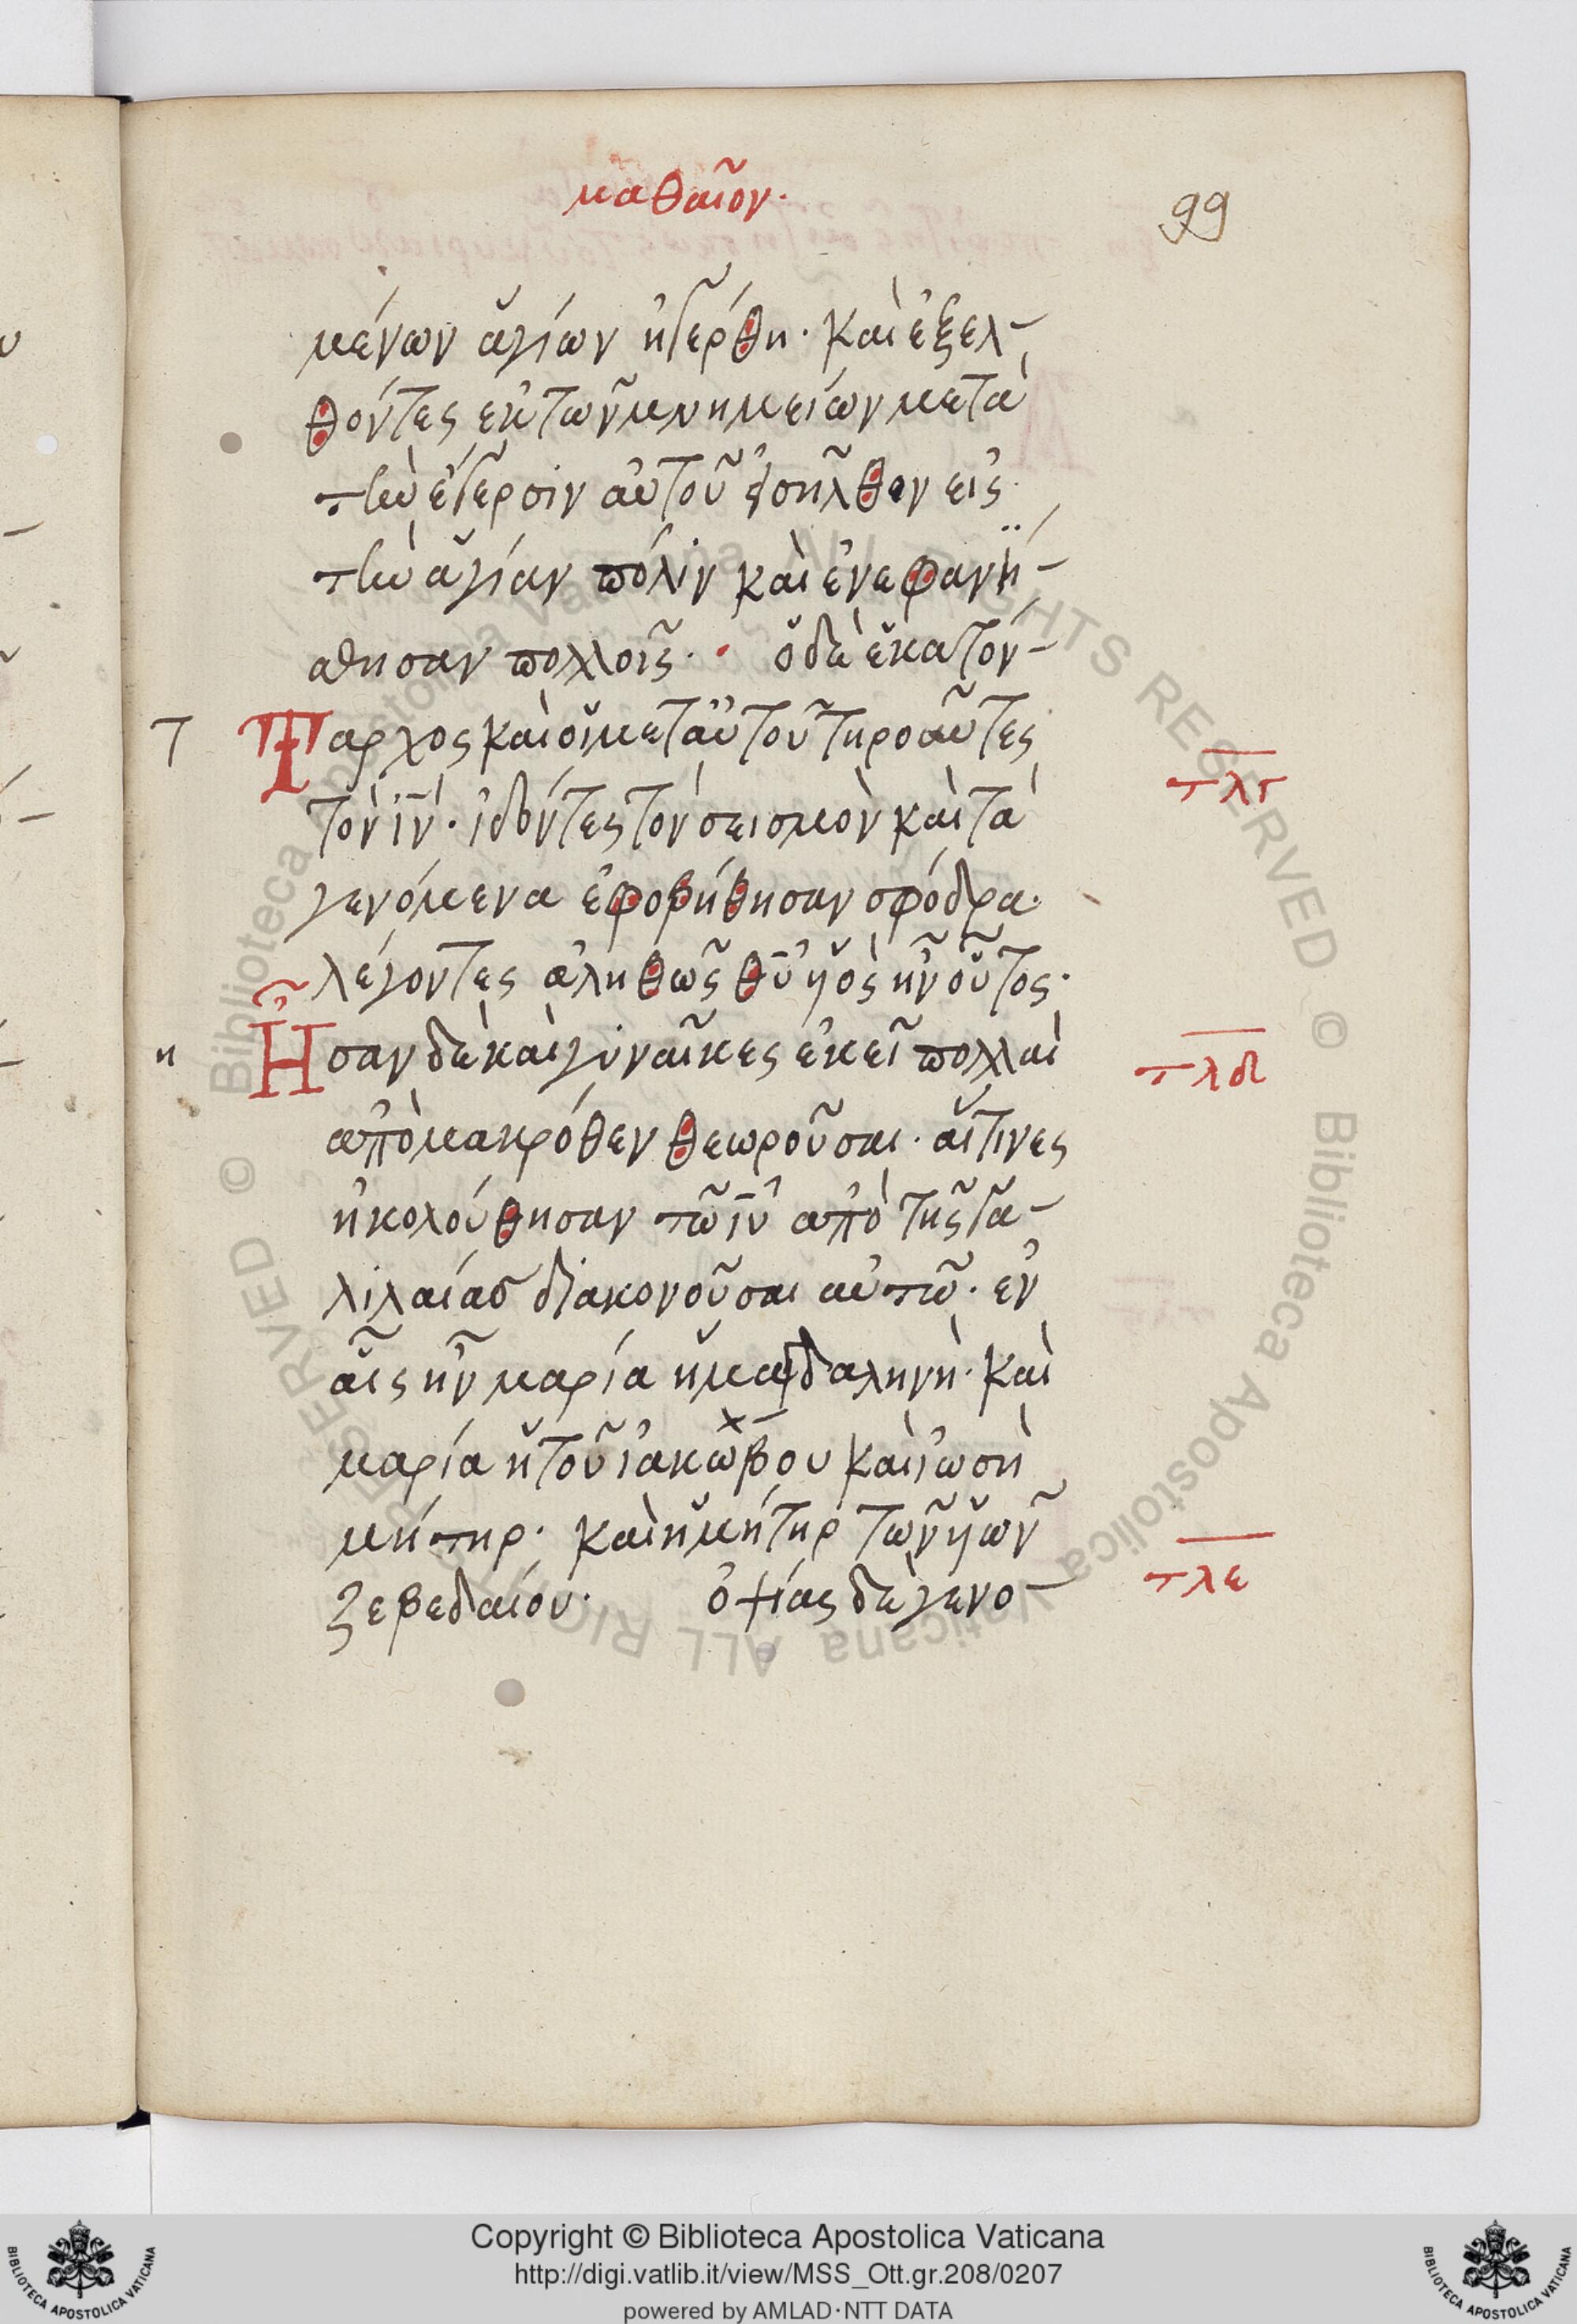 μαθαῖον·
99
μένων ἁγίων ἠγέρθη· καὶ ἐξελ-
θόντες εκ τῶν μνημείων μετὰ
τὴν ἔγερσιν αὐτοῦ ἐισῆλθον εἰς
τὴν ἁγίαν πόλιν καὶ ἐνεφανή-
σθησαν πολλοῖς· ὁ δὲ ἑκατόν-
Ταρχος καὶ οἱ μετ αὐτοῦ τηροῦντες
τὸν ιν· ἰδόντες τὸν σεισμὸν καὶ τὰ
γενόμενα ἐφοβήθησαν σφόδρα·
λέγοντες ἀληθῶς θυ ὑιὸς ἦν οὗτος·
Ἦσαν δὲ καὶ γυναῖκες ἐκεῖ πολλαὶ
ἀπὸ μακρόθεν θεωροῦσαι· αἵτινες
ἠκολούθησαν τῶ ιυ ἀπὸ τῆς γα-
λιλαίας διακονοῦσαι αὐτῶ· ἐν
αἷς ἦν μαρία ἡ μαγδαληνὴ· καὶ
μαρία ἡ τοῦ ἰακώβου καὶ ἰωσὴ
μήτηρ· καὶ ἡ μήτηρ τῶν ὑιῶν
ζεβεδαίου· ὀψίας δὲ γενο-
τ
η
τλγ
τλδ
τλε
© Biblioteca Apostolica Vaticana ALL RIGHTS RESERVED © Biblioteca Apostolica Vaticana ALL RIGHTS RESERVED
Copyright © Biblioteca Apostolica Vaticana
http://digi.vatlib.it/view/MSS_Ott.gr.208/0207
powered by AMLAD·NTT DATA
BIBLIOTECA APOSTOLICA VATICANA
BIBLIOTECA APOSTOLICA VATICANA